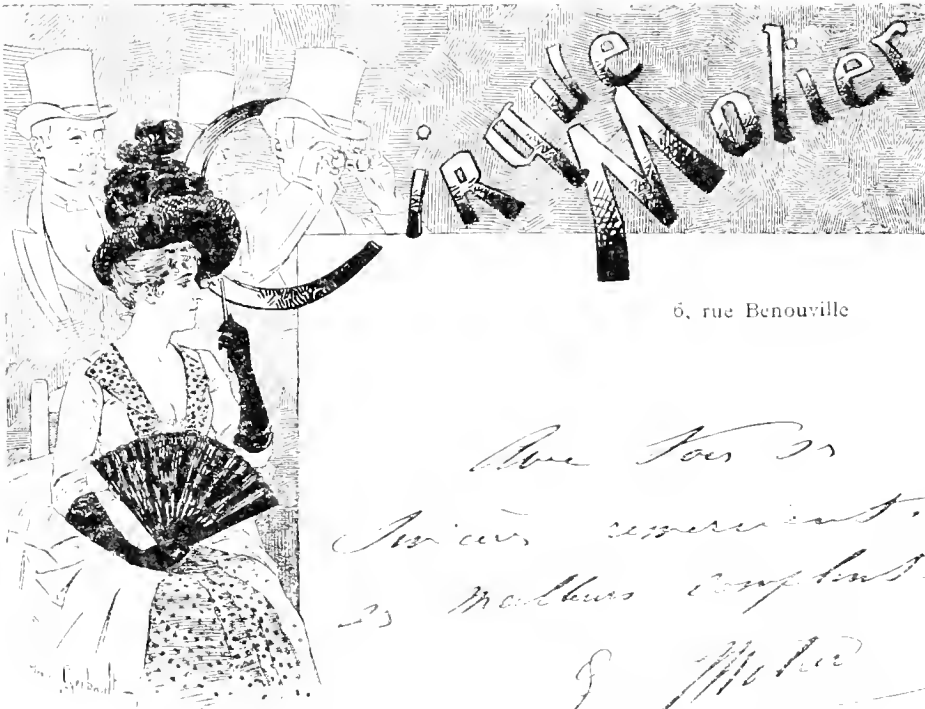 Cirque Molier
6, rue Benouville
Avec Tous ses
Sincères remerciements.
ses meilleurs compliments.
E Molier
Gerbault